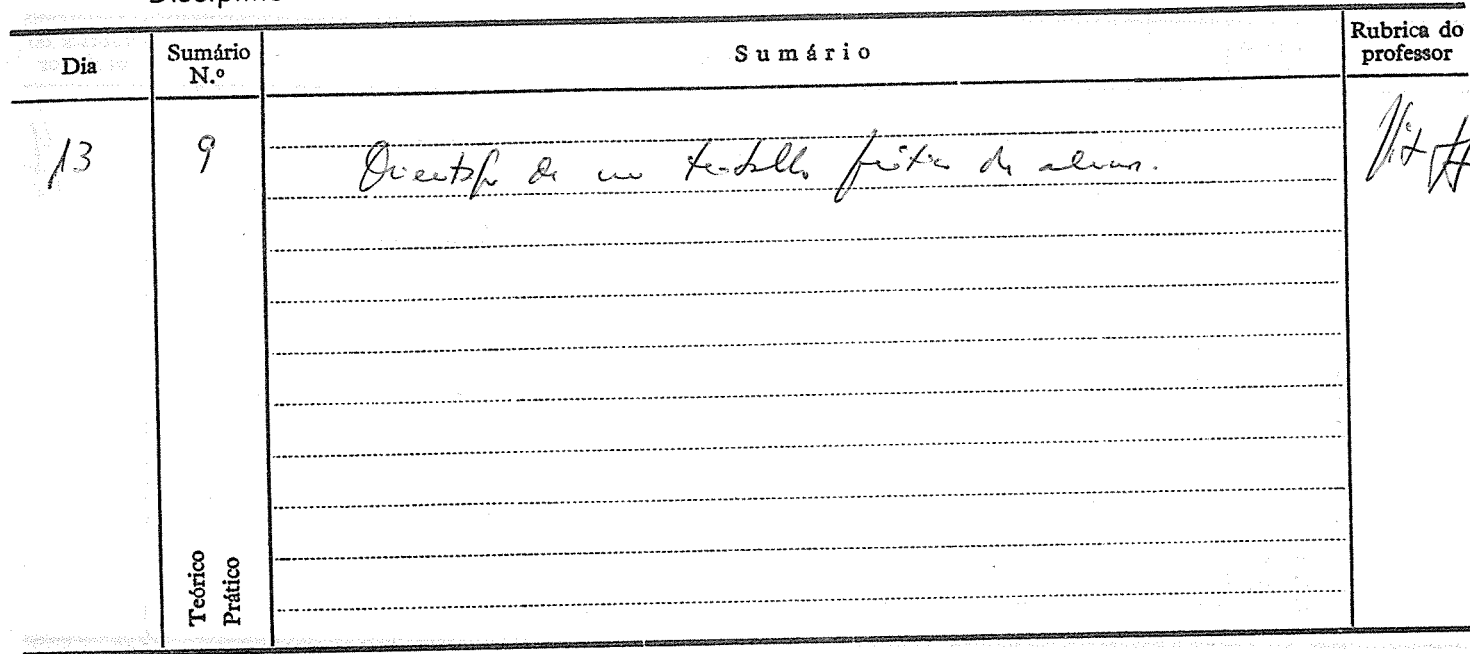 Dia
Sumário
N.º
Sumário
Rubrica do
professor
13
9
de um trabalho prático de alunos.
Teórico
Prático